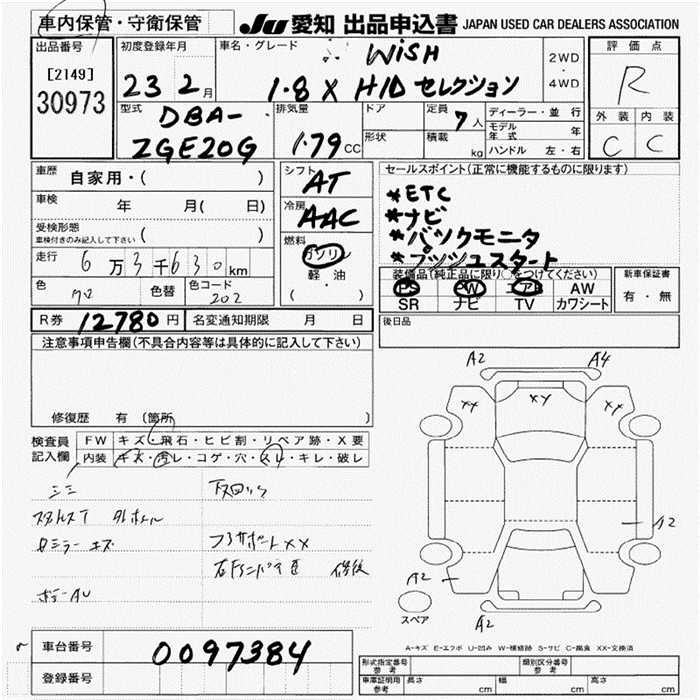 車内保管・守衛保管 JU 愛知 出品申込書 JAPAN USED CAR DEALERS ASSOCIATION
出品番号 初度登録年月 車名・グレード WiSH 2WD・4WD 評価点
[2149] 30973 23 2月 1.8 X HID セレクション R
型式 DBA- 排気量 ドア 定員 7人 ディーラー・並行 外装 内装
ZGE20G 1.79 CC 形状 積載 kg モデル年式 年 C C
ハンドル 左・右
車歴 自家用・( ) シフト AT セールスポイント(正常に機能するものに限ります)
車検 年 月( 日) 冷房 AAC *ETC
*ナビ
受検形態 車検付きのみ記入して下さい ( ) 燃料 ガソリン *バックモニタ
走行 6万3千630km 軽・油 *プッシュスタート
装備品(純正品に限り○をつけてください) 新車保証書
色 色替 色コード 202 ( ・ ) PS PW エアB AW 有・無
SR ナビ TV カワシート
R券 12780円 名変通知期限 月 日 後日品
注意事項申告欄(不具合内容等は具体的に記入して下さい)
修復歴 有(箇所
検査員記入欄 FW キズ・飛石・ヒビ割・リペア跡・X要
内装 キズ・汚レ・コゲ・穴・スレ・キレ・破レ
A2 A4
XX XY XX
A2
A2
スペア A2
A-キズ E-エクボ U-凹み W-補修跡 S-サビ C-腐食 XX-交換済
車台番号 0097384
登録番号
型式指定番号 参考 類別区分番号 参考
車庫証明用 参考 長さ cm 幅 cm 高さ cm